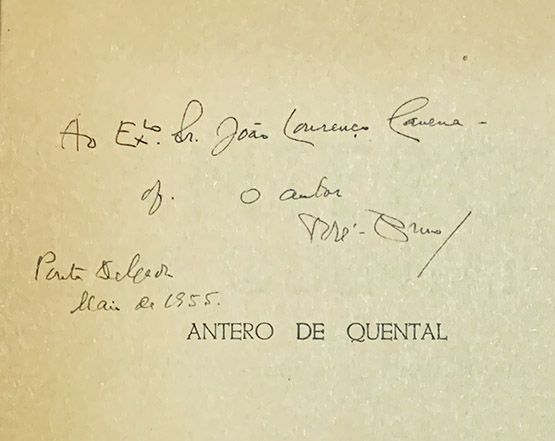 Ao Exto. Sr. João Lourenço
of. O autor
José Bruno
Ponta Delgada
Maio de 1955.
ANTERO DE QUENTAL